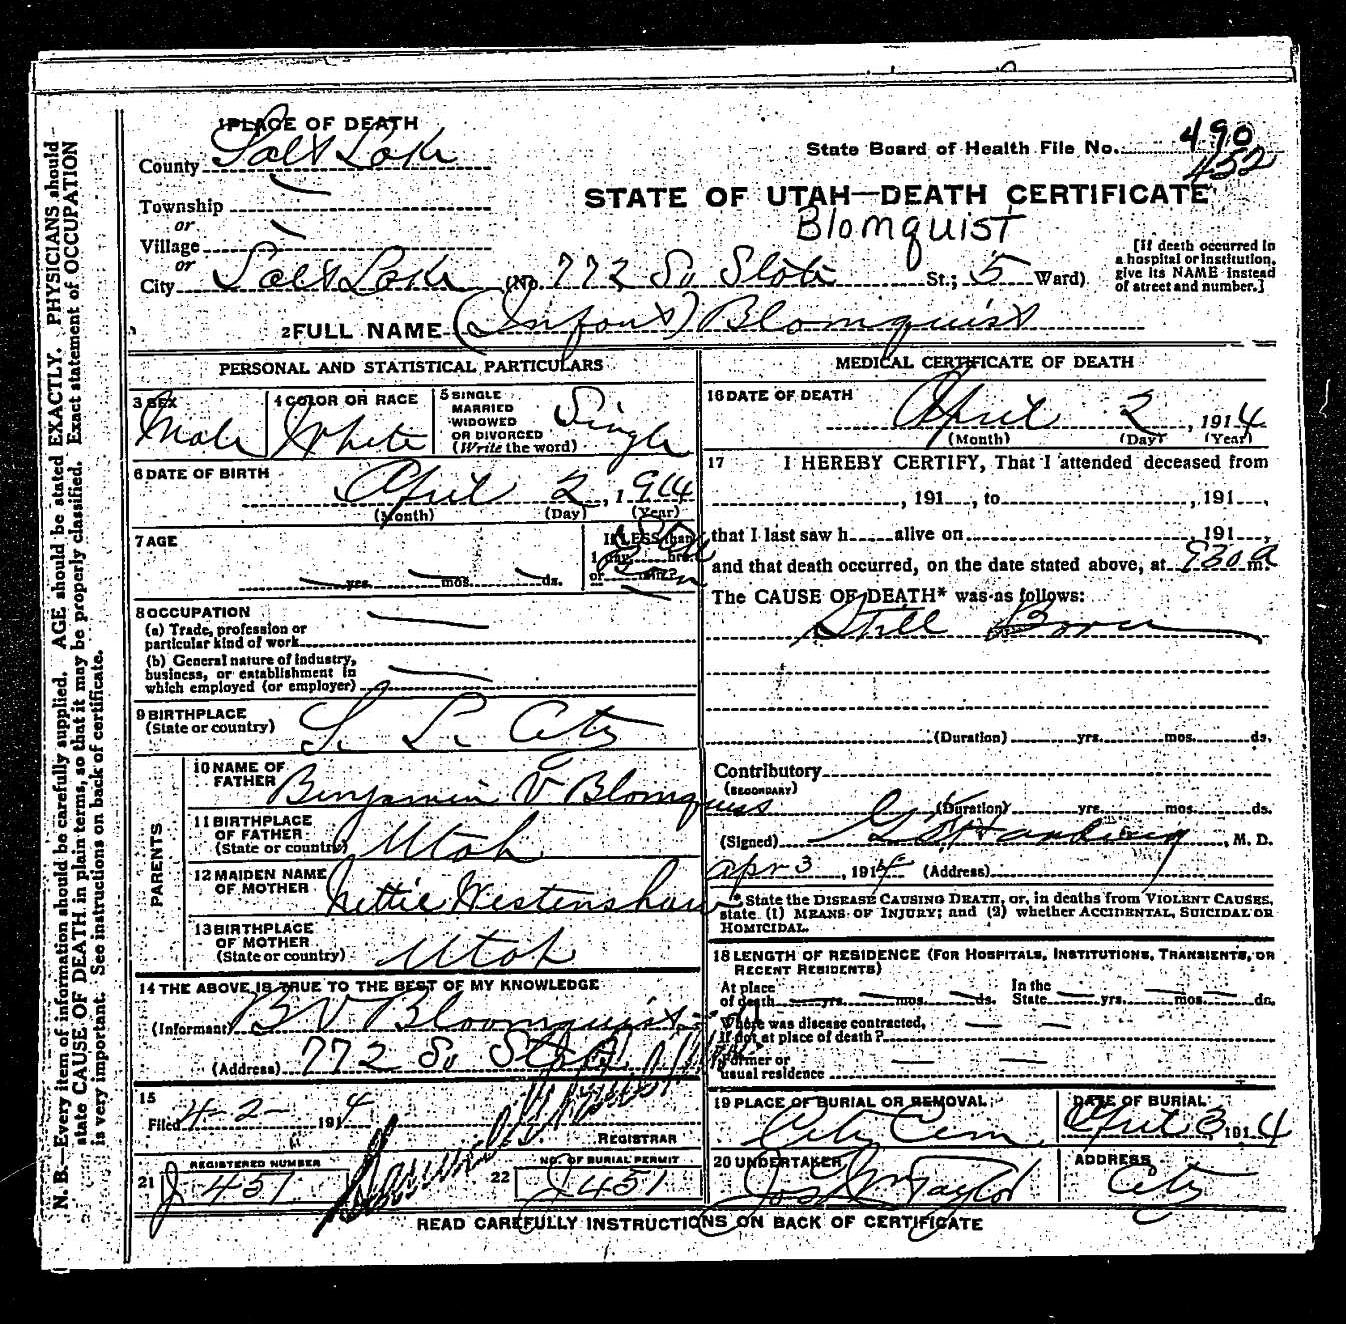 1 PLACE OF DEATH
County Salt Lake
Township
or
Village
or
City Salt Lake (No. 772 So State St.; 5 Ward)
State Board of Health File No. 490
452
STATE OF UTAH—DEATH CERTIFICATE
Blomquist
[If death occurred in a hospital or institution, give its NAME instead of street and number.]
2 FULL NAME (Infant) Blomquist
PERSONAL AND STATISTICAL PARTICULARS
3 SEX Male
4 COLOR OR RACE White
5 SINGLE MARRIED WIDOWED OR DIVORCED (Write the word) Single
6 DATE OF BIRTH April 2, 1914
(Month) (Day) (Year)
7 AGE yrs. mos. ds.
If LESS than 1 day hrs. or min? Still Born
8 OCCUPATION
(a) Trade, profession or particular kind of work
(b) General nature of industry, business, or establishment in which employed (or employer)
9 BIRTHPLACE (State or country) S. L. City
PARENTS
10 NAME OF FATHER Benjamin V Blomquist
11 BIRTHPLACE OF FATHER (State or country) Utah
12 MAIDEN NAME OF MOTHER Nettie
13 BIRTHPLACE OF MOTHER (State or country) Utah
14 THE ABOVE IS TRUE TO THE BEST OF MY KNOWLEDGE
(Informant) B V Bloomquist
(Address) 772 So State
15
Filed 4-2- 1914
REGISTRAR
21 REGISTERED NUMBER J 451
22 NO. OF BURIAL PERMIT J 451
MEDICAL CERTIFICATE OF DEATH
16 DATE OF DEATH April 2, 1914
(Month) (Day) (Year)
17 I HEREBY CERTIFY, That I attended deceased from
, 191 , to , 191 ,
that I last saw h alive on , 191 ,
and that death occurred, on the date stated above, at 930 a m.
The CAUSE OF DEATH* was as follows:
Still Born
(Duration) yrs. mos. ds.
Contributory (SECONDARY)
(Duration) yrs. mos. ds.
(Signed) Harding, M. D.
Apr 3, 1914 (Address)
* State the DISEASE CAUSING DEATH, or, in deaths from VIOLENT CAUSES, state (1) MEANS OF INJURY; and (2) whether ACCIDENTAL, SUICIDAL OR HOMICIDAL.
18 LENGTH OF RESIDENCE (FOR HOSPITALS, INSTITUTIONS, TRANSIENTS, OR RECENT RESIDENTS)
At place of death yrs. mos. ds. In the State yrs. mos. ds.
Where was disease contracted, if not at place of death?
Former or usual residence
19 PLACE OF BURIAL OR REMOVAL City Cem
DATE OF BURIAL April 3, 1914
20 UNDERTAKER Jos Wm Taylor
ADDRESS City
READ CAREFULLY INSTRUCTIONS ON BACK OF CERTIFICATE
N. B.—Every item of information should be carefully supplied. AGE should be stated EXACTLY. PHYSICIANS should
state CAUSE OF DEATH in plain terms, so that it may be properly classified. Exact statement of OCCUPATION
is very important. See instructions on back of certificate.